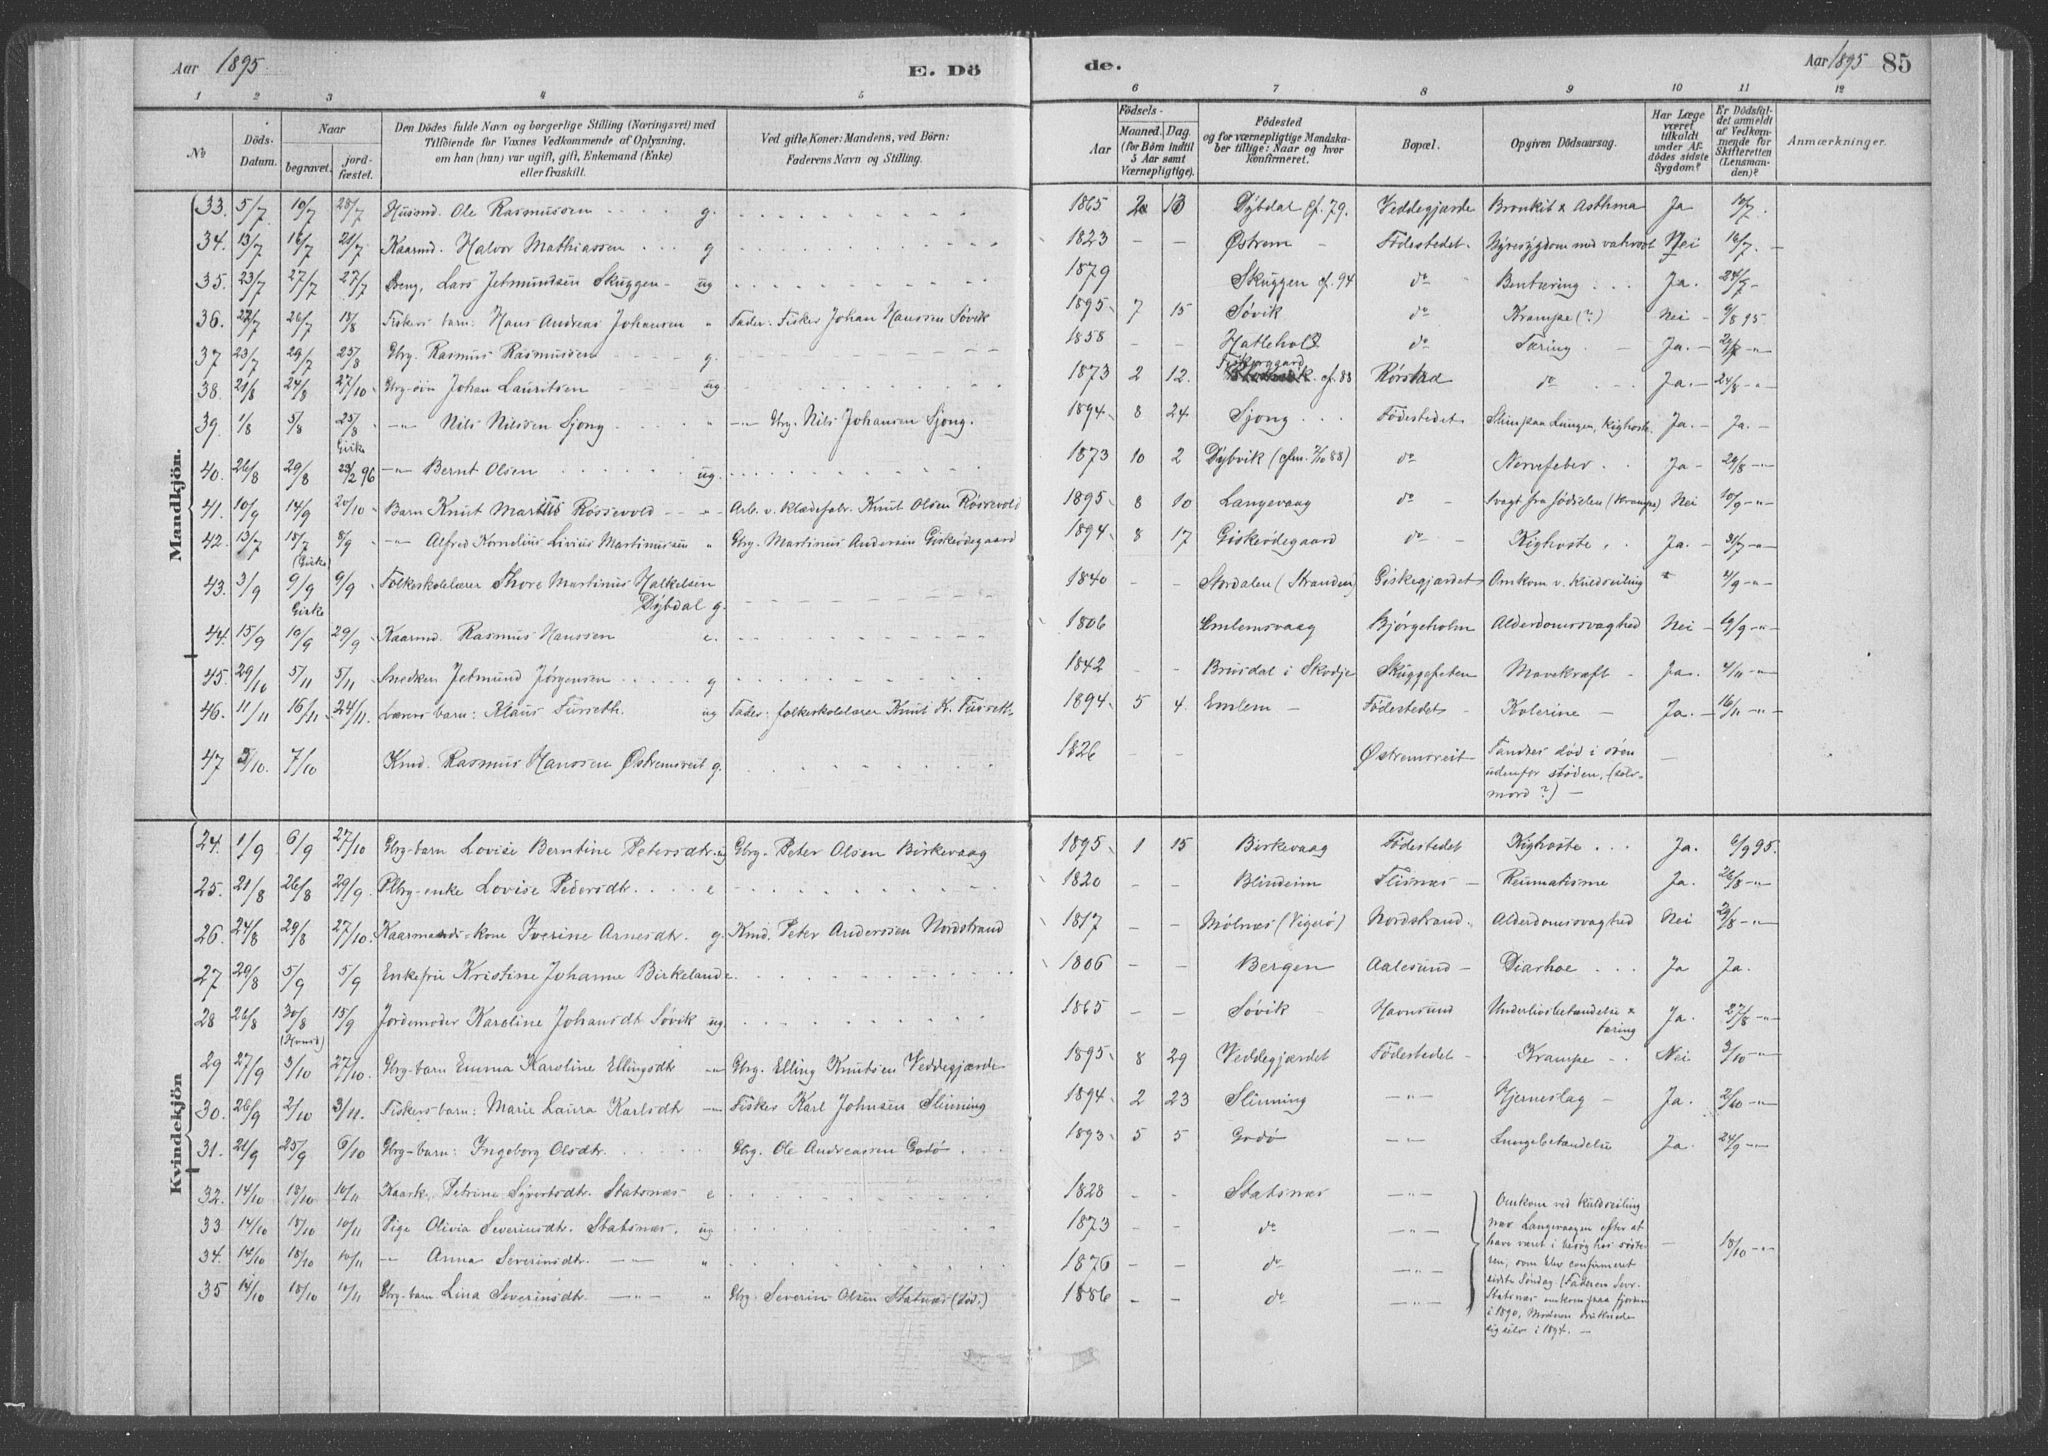 Aar 1895.
E. Dö
de.
Aar 1895 85
1 2 3 4 5 6 7 8 9 10 11 12
No
Döds-Datum.
Naar
begravet.
jord-fæstet.
Den Dödes fulde Navn og borgerlige Stilling (Næringsvei) med
Tilföiende for Voxnes Vedkommende af Oplysning.
om han (hun) var ugift, gift, Enkemand (Enke)
eller fraskilt.
Ved gifte Koner: Mandens, ved Börn:
Faderens Navn og Stilling.
Födsels-
Aar
Maaned. Dag.
(for Börn indtil
5 Aar samt
Værnepligtige).
Födested
og for værnepligtige Mandska-
ber tillige: Naar og hvor
konfirmeret.
Bopæl.
Opgiven Dödsaarsag.
Har Læge
været
tilkaldt
under Af-
dödes sidste
Sygdom?
Er Dödsfal-
det anmeldt
af Vedkom-
mende for
Skifteretten
(Lensman-
den)?
Anmærkninger.
Mandkjön.
33. 5/7 10/7 28/7 Husmd. Ole Rasmussen g. 1865 2 13 Dybdal cf. 79. Veddegjærde Bronkit & Asthma Ja 10/7.
34. 13/7 16/7 21/7 Kaarmd. Halvor Mathiassen g 1823 - - Østrem Födestedet. Nyresygdom med vatersot Nei 16/7
35. 23/7 27/7 27/7 Dreng, Lars Jetmundsen Skuggen ug 1879 Skuggen cf. 94 do Bentæring Ja. 24/7
36. 22/7 26/7 18/8 Fiskers barn: Hans Andreas Johansen " Fader. Fisker Johan Hanssen Søvik 1895 7 15 Søvik do Krampe (?) Nei 9/8 95.
37 23/7 29/7 25/8 Gbrg. Rasmus Rasmussen g. 1858 - - Hatlehol do Tæring Ja. -"-
38. 21/8 24/8 27/10 Gbrg-søn Johan Lauritsen ug 1873 2 12. Fiskergaard cf. 88 Rørstad do Ja. 24/8 -"-
39. 1/8 5/8 25/8 -"- Nils Nilssen Sjong " -"- Gbrg. Nils Johansen Sjong. 1894 8 24 Sjong Födestedet Slim paa Lungen, Kighoste. Ja Ja.
Giske
40. 26/8 29/8 23/2 96 -"- Bernt Olsen ug. 1873 10 2 Dybvik (cfm. 7/10 88) do Nervefeber Ja 29/8 -"-
41. 10/9 14/9 20/10 Barn Knut Martius Røssevold " Arb. v. Klædefabr. Knut Olsen Røssevold 1895 8 10 Langevaag do Svagt fra fødselen (Krampe) Nei 10/9 -"-
42. 13/7 18/7 8/9 -"- Alfred Kornelius Livius Martinussen " Gbrg. Martinus Andersen Giskeødegaard 1894 8 17 Giskeødegaard do Kighoste Ja. 31/7 -"-
(Giske)
43. 3/9 9/9 9/9 Folkeskolelærer Thore Martinus Halkelsen 1840 - - Stordalen (Stranden) Giskegjærdet Omkom v. Kuldseiling 4/9 -"-
Giske Dybdal g.
44. 15/9 19/9 29/9 Kaarmd. Rasmus Hanssen e. 1806 Emlemsvaag Bjørgeholm Alderdomssvaghed Nei 19/9 -"-
45. 29/10 5/11 5/11 Snedker Jetmund Jørgensen g 1842 - - Brusdal i Skodje Skuggefeten Mavekræft Ja. 4/11 -"-
46. 11/11 16/11 24/11. Lærers barn: Klaus Furseth. ug Fader: folkeskolelærer Knut K. Furseth 1894 5 4. Emlem Födestedet Kolerine Ja. 16/11 -"-
47 3/10. 7/10 Kmd. Rasmus Hanssen Østremsreit g. 1826 - - Østremsreit Fandtes død i søen
udenfor støden, (selv-
mord?)
Kvindekjön
24. 1/9 6/9 27/10 Gbrg-barn Lovise Berntine Petersdtr. ug Gbrg. Peter Olsen Birkevaag 1895 1 15 Birkevaag Födestedet Kighoste Ja. 6/9 95.
25. 21/8 26/8 29/9. Gbrg-enke Lovise Pedersdtr. e 1820 - - Blindeim Flisnæs Reumatisme Ja. 26/8 -"-
26. 24/8 29/8 27/10. Kaarmands-kone Iverine Arnesdtr. g. Kmd. Peter Anderssen Nordstrand 1817 - - Mølnæs (Vigerö) Nordstrand. Alderdomssvaghed Nei 29/8 -"-
27 29/8 5/9 5/9 Enkefru Kristine Johanne Birkeland e. 1806 - - Bergen Aalesund Diarhoe Ja Ja.
28 26/8 30/8 15/9 Jordemoder Karoline Johansdt Søvik ug. 1865 - - Søvik Havnsund Underlivsbetændelse &
tæring Ja. 27/8 -"-
29 27/9 3/10 27/10. Gbrg-barn Emma Karoline Ellingsdtr -"- Gbrg. Elling Knutsen Veddegjærde 1895 8 29 Veddegjærdet Födestedet Krampe Nei 3/10 -"-
30. 26/9 2/10 3/11. Fiskers barn: Marie Laura Karlsdtr -"- Fisker Karl Johnsen Slinning 1894 2 23 Slinning -"- Hjerneslag Ja. 2/10 -"-
31. 21/9 25/9 6/10 Gbrg-barn: Ingeborg Olsdtr. Gbrg. Ole Andreassen Godø 1893 5 5 Godø -"- Lungebetændelse Ja. 24/9 -"-
32. 14/10 18/10 10/11 Kaark. Petrine Syvertsdtr. Statsnæs e 1828 - - Statsnæs -"-
33 14/10 18/10 10/11 Pige Olivia Severinsdtr. Statsnæs. ug 1873 - - do -"-
34. 14/10 18/10 10/11 -"- Anna Severinsdtr. -"- " 1876 - - do -"-
35 14/10 18/10 10/11 Gbrg-barn Lina Severinsdtr. -"- " Gbrg. Severin Olsen Statsnæs (død.) 1886 - - do -"-
Omkom ved kuldseiling
nær Langevaagen efter at
have været i besøg hos søste-
ren, som blev confirmeret
sidste Søndag (Faderen Sevr.
Statsnæs omkom paa fjorden
i 1890, Moderen druknede
sig selv i 1894. 18/10 -"-